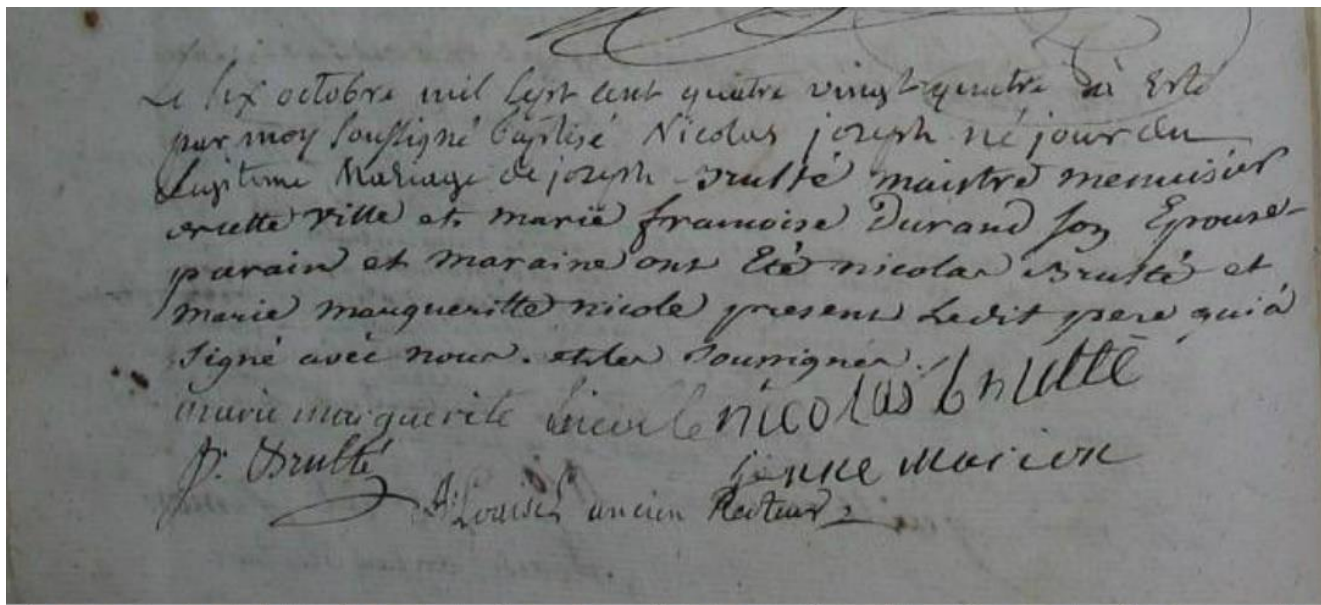 Le six octobre mil sept cent quatre vingt quatre a Esté
par moy soussigné baptisé Nicolas joseph né jour du
Legitime Mariage de joseph Brutté maistre menuisier
en cette ville et marie francoise Durand son Epouse
parain et maraine ont Eté nicolas Brutté et
marie margueritte nicole present Ledit pere qui à
signé avec nous. et les soussignés.
marie marguerite nicole nicolas brutté
J. Brutté jenne marion
ancien Recteur